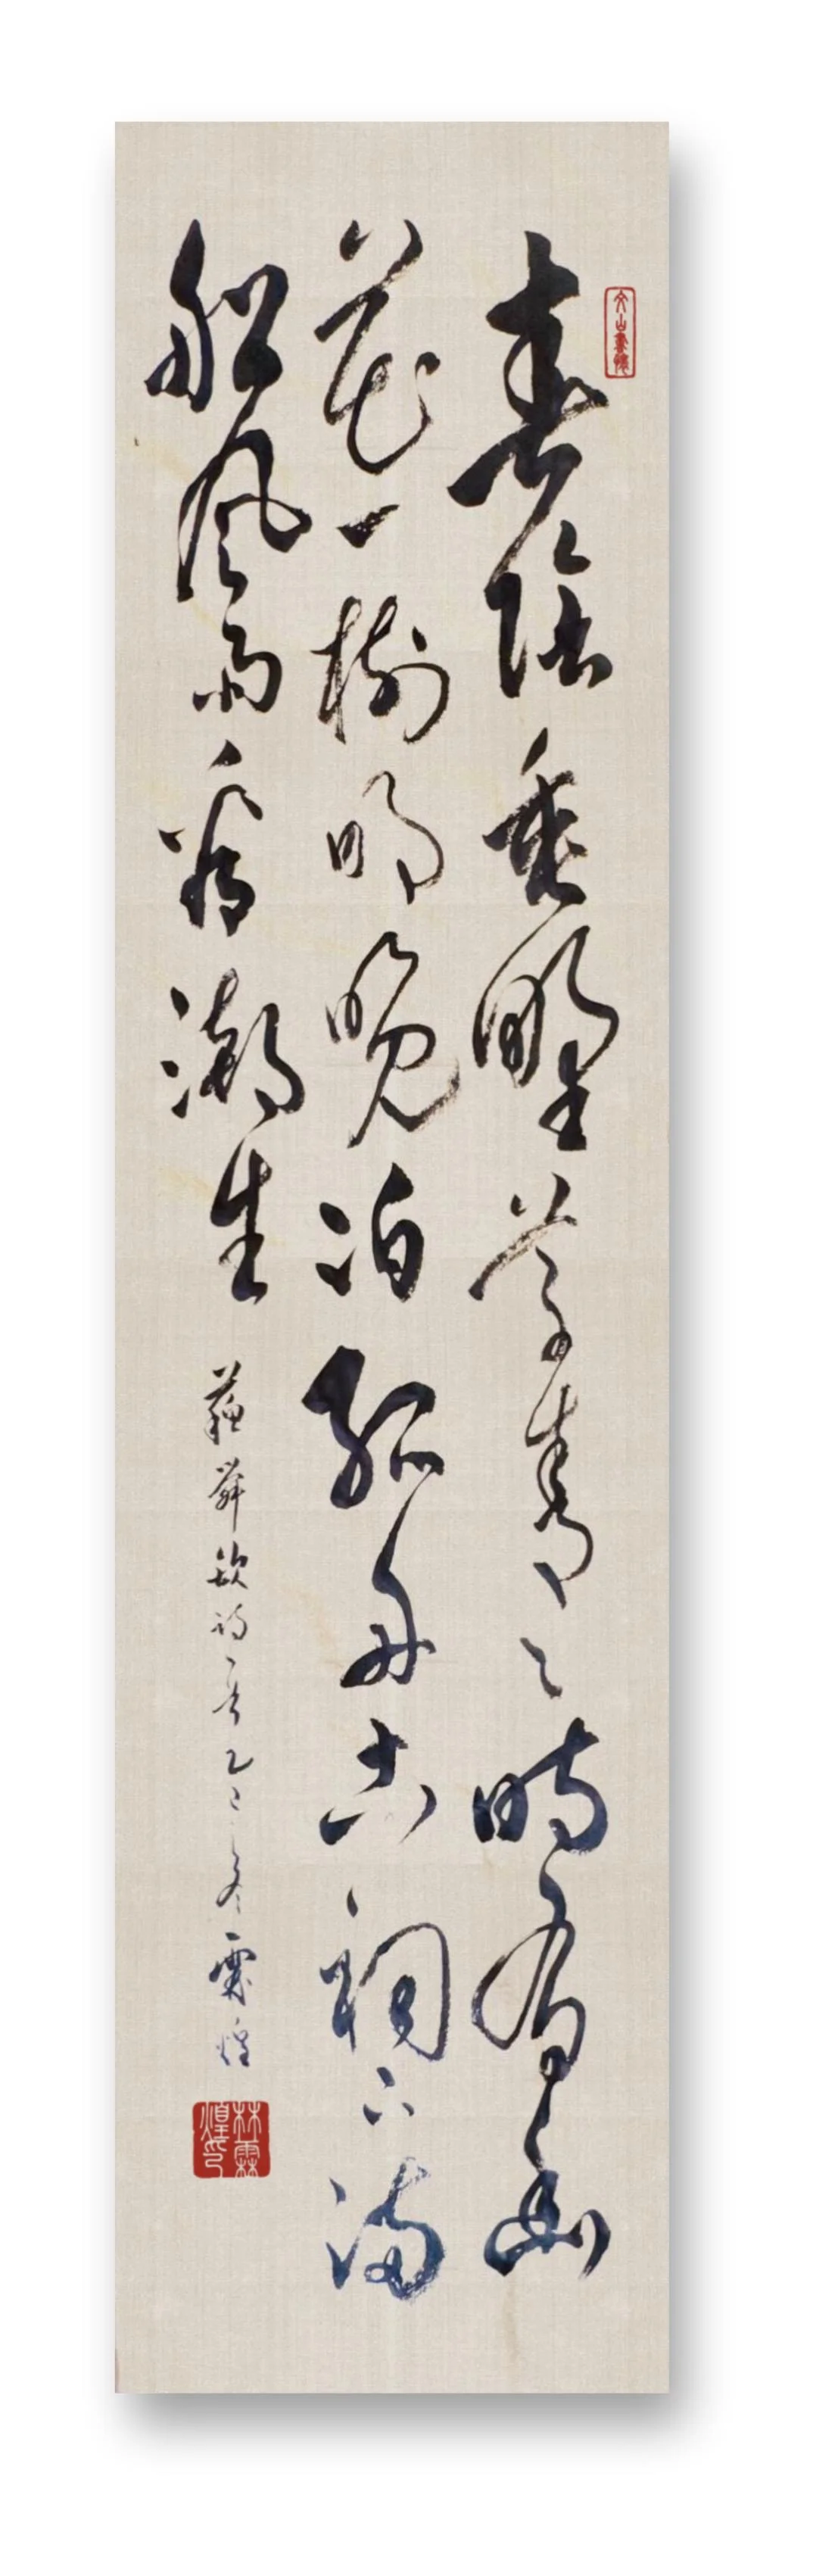 春陰垂野草青々時有幽
花一樹明晚泊孤舟古祠下滿
船風雨看潮生
蘇舜欽詩一首乙巳冬霖煌
林霖煌印